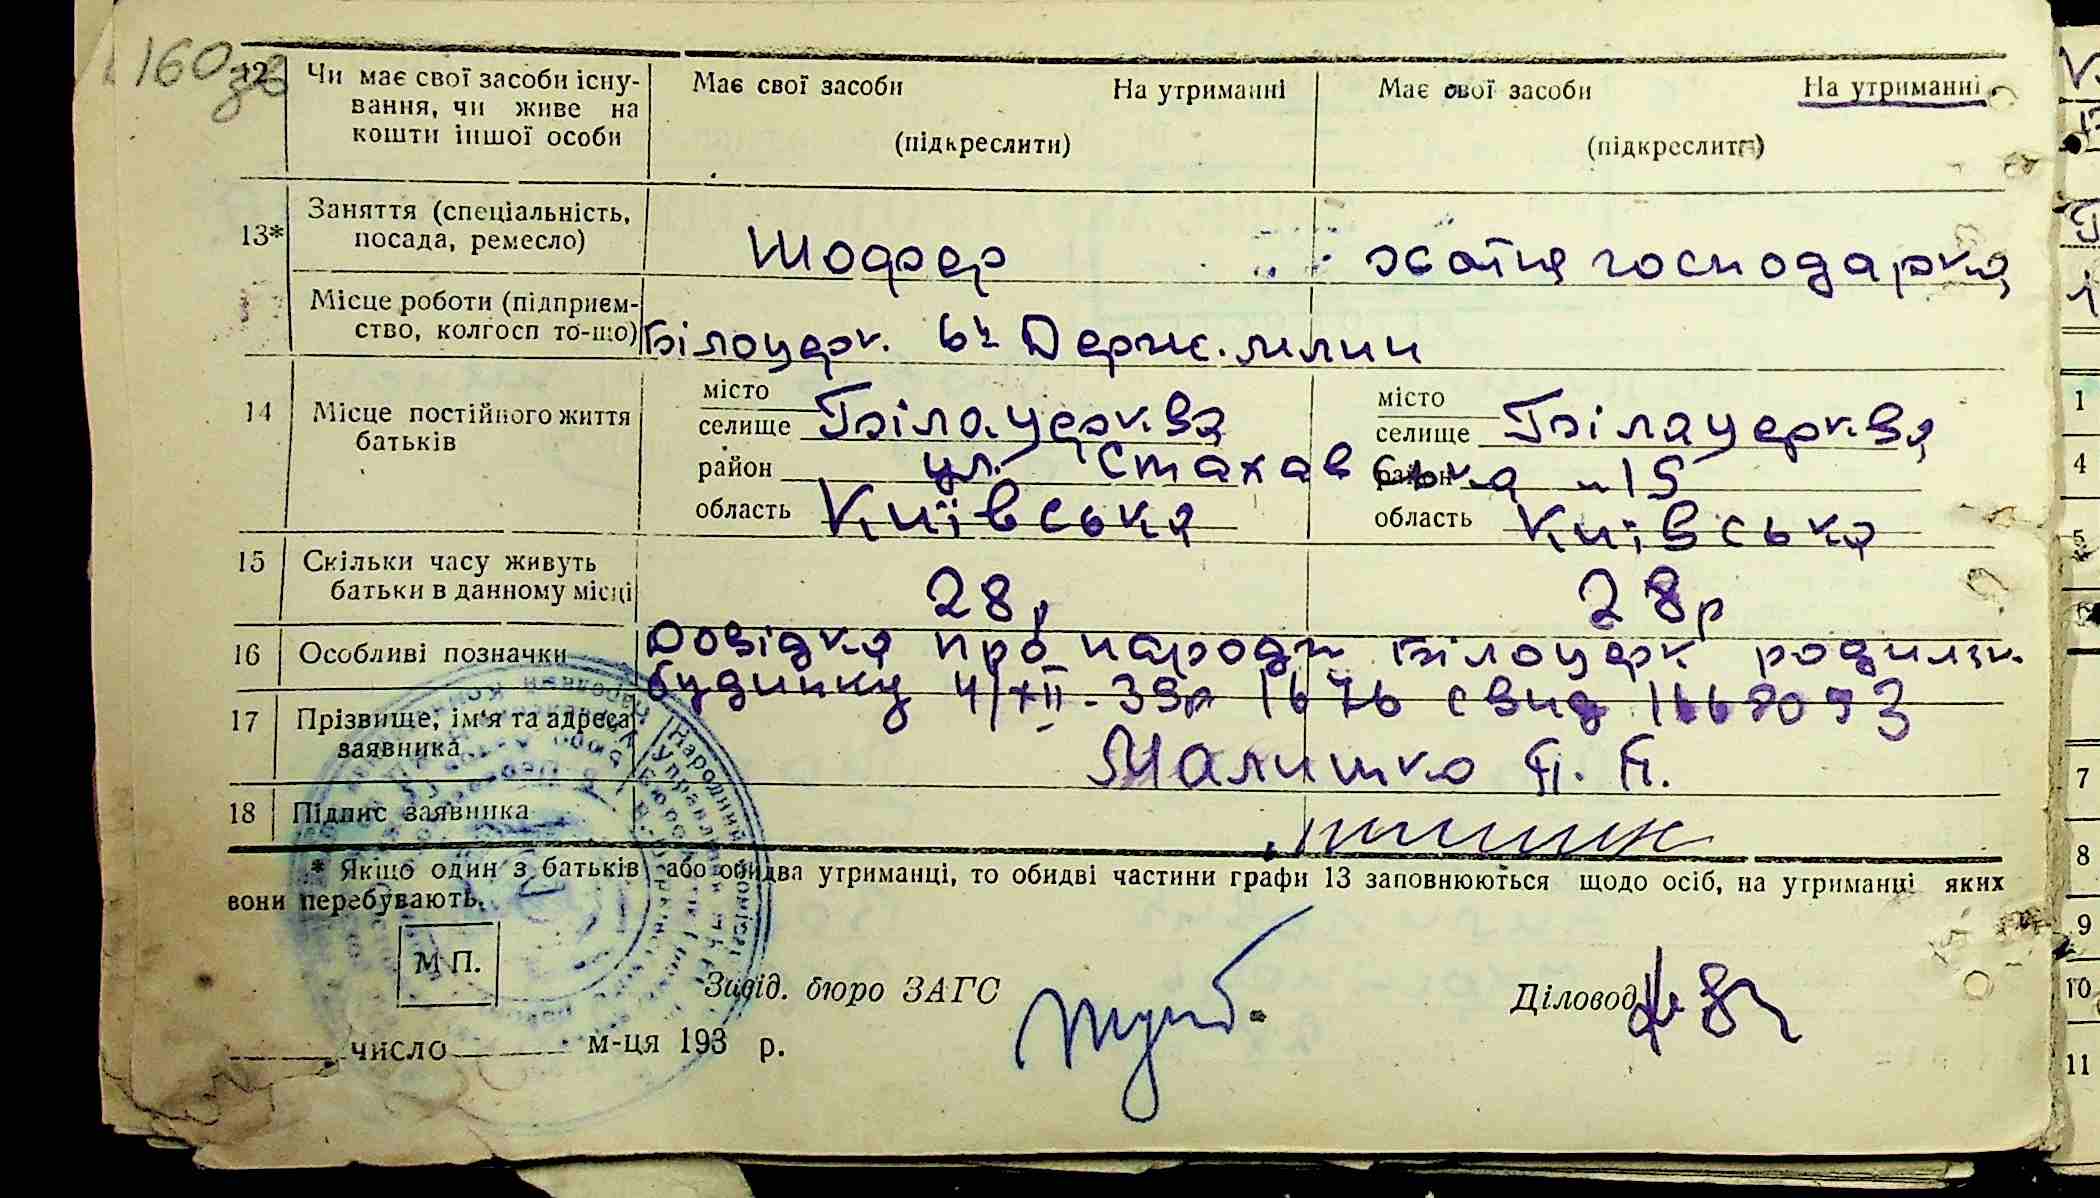 160 зв
12 Чи має свої засоби існу- Має свої засоби На утриманні Має свої засоби На утриманні
вання, чи живе на
кошти іншої особи (підкреслити) (підкреслити)
13* Заняття (спеціальність,
посада, ремесло) Шофер хатня господарка
Місце роботи (підприєм-
ство, колгосп то-що) Білоцерк. 6й Держ. млин
14 Місце постійного життя місто місто
батьків селище Біла церква селище Біла церква
район ул. Стахавська 15 район
область Київська область Київська
15 Скільки часу живуть
батьки в данному місці 28р 28р
16 Особливі позначки Довідка про народж Білоцерк родильн.
будинку 4/XII-39р 1676 свид
17 Прізвище, ім'я та адреса
заявника Малишко П. П.
18 Підпис заявника
* Якщо один з батьків або обидва утриманці, то обидві частини графи 13 заповнюються щодо осіб, на утриманні яких
вони перебувають.
М П.
Завід. бюро ЗАГС Діловод
число м-ця 193 р.
1
4
5
6
7
8
9
10
11